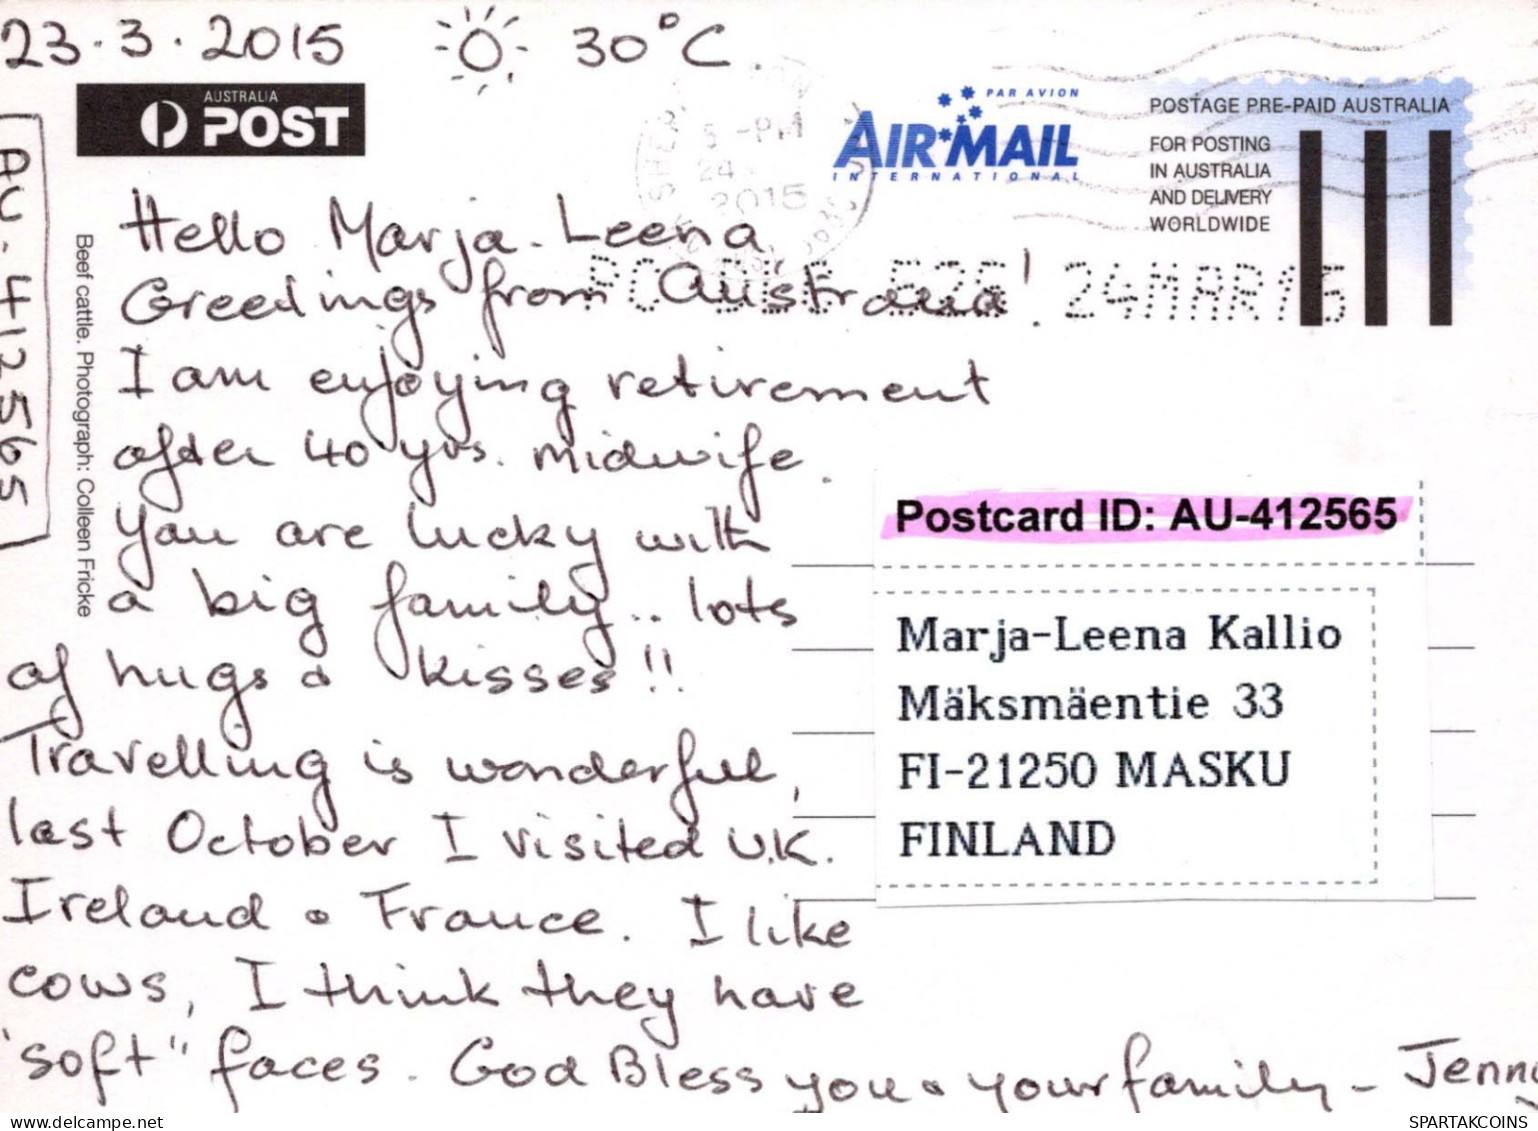 23.3.2015 30°C
AUSTRALIA
POST
PAR AVION
AIR MAIL
INTERNATIONAL
POSTAGE PRE-PAID AUSTRALIA
FOR POSTING
IN AUSTRALIA
AND DELIVERY
WORLDWIDE
-PM
24
2015
24MAR15
AU-412565
Beef cattle. Photograph: Colleen Fricke
Hello Marja-Leena
Greetings from Australia!
I am enjoying retirement
after 40 yrs. midwife.
You are lucky with
a big family.. lots
of hugs & kisses!!
Travelling is wonderful,
last October I visited U.K.
Ireland & France. I like
cows, I think they have
"soft" faces. God Bless you & your family - Jenny
Postcard ID: AU-412565
Marja-Leena Kallio
Mäksmäentie 33
FI-21250 MASKU
FINLAND
SPARTAKCOINS